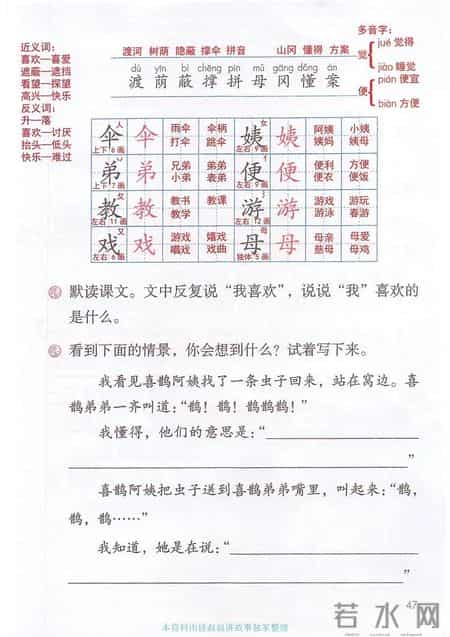 近义词：
喜欢—喜爱
遮蔽—遮挡
看望—探望
高兴—快乐
反义词：
升—落
喜欢—讨厌
抬头—低头
快乐—难过
渡河 树荫 隐蔽 撑伞 拼音 山冈 懂得 方案
dù yīn bì chēng pīn mǔ gāng dǒng àn
渡 荫 蔽 撑 拼 母 冈 懂 案
多音字：
觉 jué 觉得
jiào 睡觉
便 pián 便宜
biàn 方便
伞 伞 雨伞 伞柄 打伞 跳伞 上下 6 画
姨 姨 阿姨 小姨 姨妈 姨母 左右 9 画
弟 弟 兄弟 弟弟 小弟 表弟 上下 7 画
便 便 便利 方便 便农 便饭 左右 9 画
教 教 教书 教课 教学 左右 11 画
游 游 游戏 游玩 游泳 春游 左右 12 画
戏 戏 游戏 嬉戏 唱戏 戏曲 左右 6 画
母 母 母亲 母爱 慈母 母鸡 独体 5 画
默读课文。文中反复说“我喜欢”，说说“我”喜欢的
是什么。
看到下面的情景，你会想到什么？试着写下来。
我看见喜鹊阿姨找了一条虫子回来，站在窝边。喜
鹊弟弟一齐叫道：“鹊！鹊！鹊鹊鹊！”
我懂得，他们的意思是：“
”
喜鹊阿姨把虫子送到喜鹊弟弟嘴里，叫起来：“鹊，
鹊，鹊……”
我知道，她是在说：“
”
47
若水网